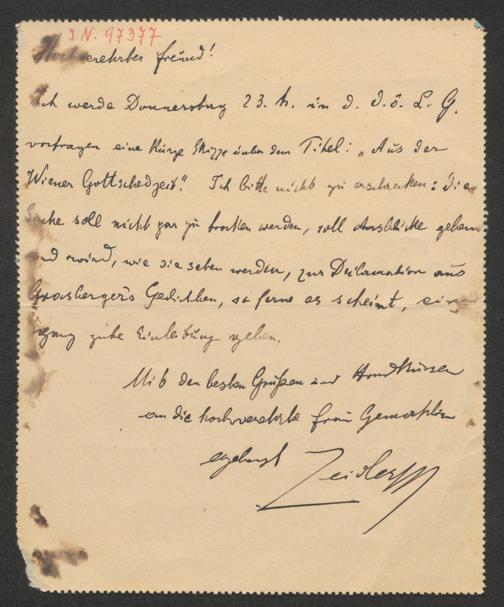 J.N. 97377
Hochverehrter Freund!
Ich werde Donnerstag 23. h. in d. d. ö. L. G.
vortragen eine kurze Skizze unter dem Titel: „Aus der
Wiener Gottschedzeit." Ich bitte nicht zu erschrecken: die
Sache soll nicht gar zu trocken werden, soll Ausblicke geben
und wird, wie sie sehen werden, zur Deklamation aus
Grasberger's Gedichten, so ferne es scheint, eine
ganz gute Einleitung geben.
Mit den besten Grüßen und Handküssen
an die hochverehrte Frau Gemahlin
ergebenst Zeidler